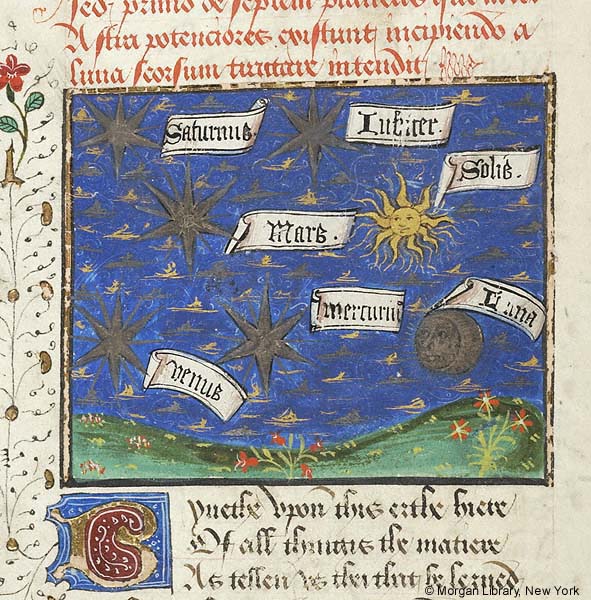 Sed primo de septem planetis que inter
Astra potenciores existunt incipiendo a
luna seorsum tractare intendit
Saturnus.
Iubiter.
Solis.
Mars.
mercurius
Luna
venus
ynethe vpon this erthe hiere
Of all thinges the matiere
As tellen vs thei that be lerned
© Morgan Library, New York